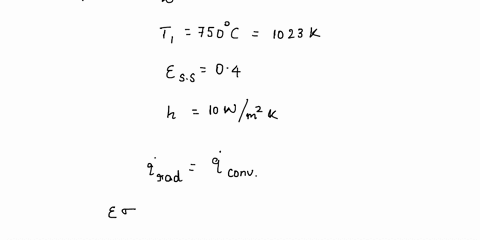 T₁ = 750°C = 1023 K
ε_s.s = 0.4
h = 10 W/m² K
q̇_rad = q̇_conv.
εσ